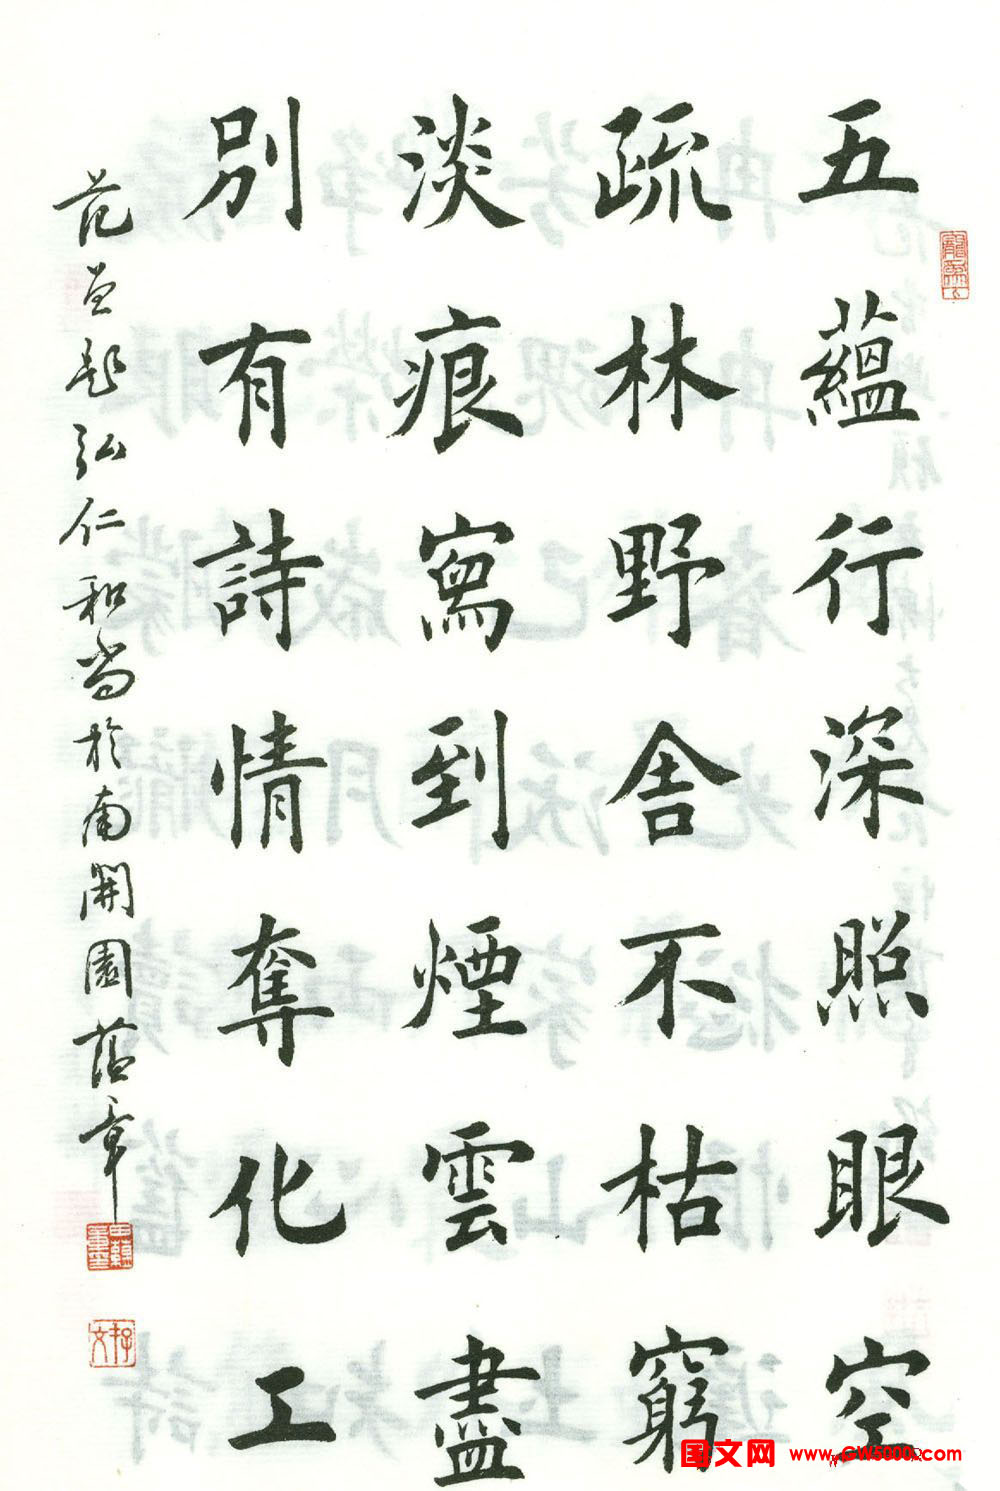 五蘊行深照眼空
疏林野舍不枯窮
淡痕寫到煙雲盡
別有詩情奪化工
范曾題弘仁和尚於南開園蘊章
国文网 www.GW5000.com